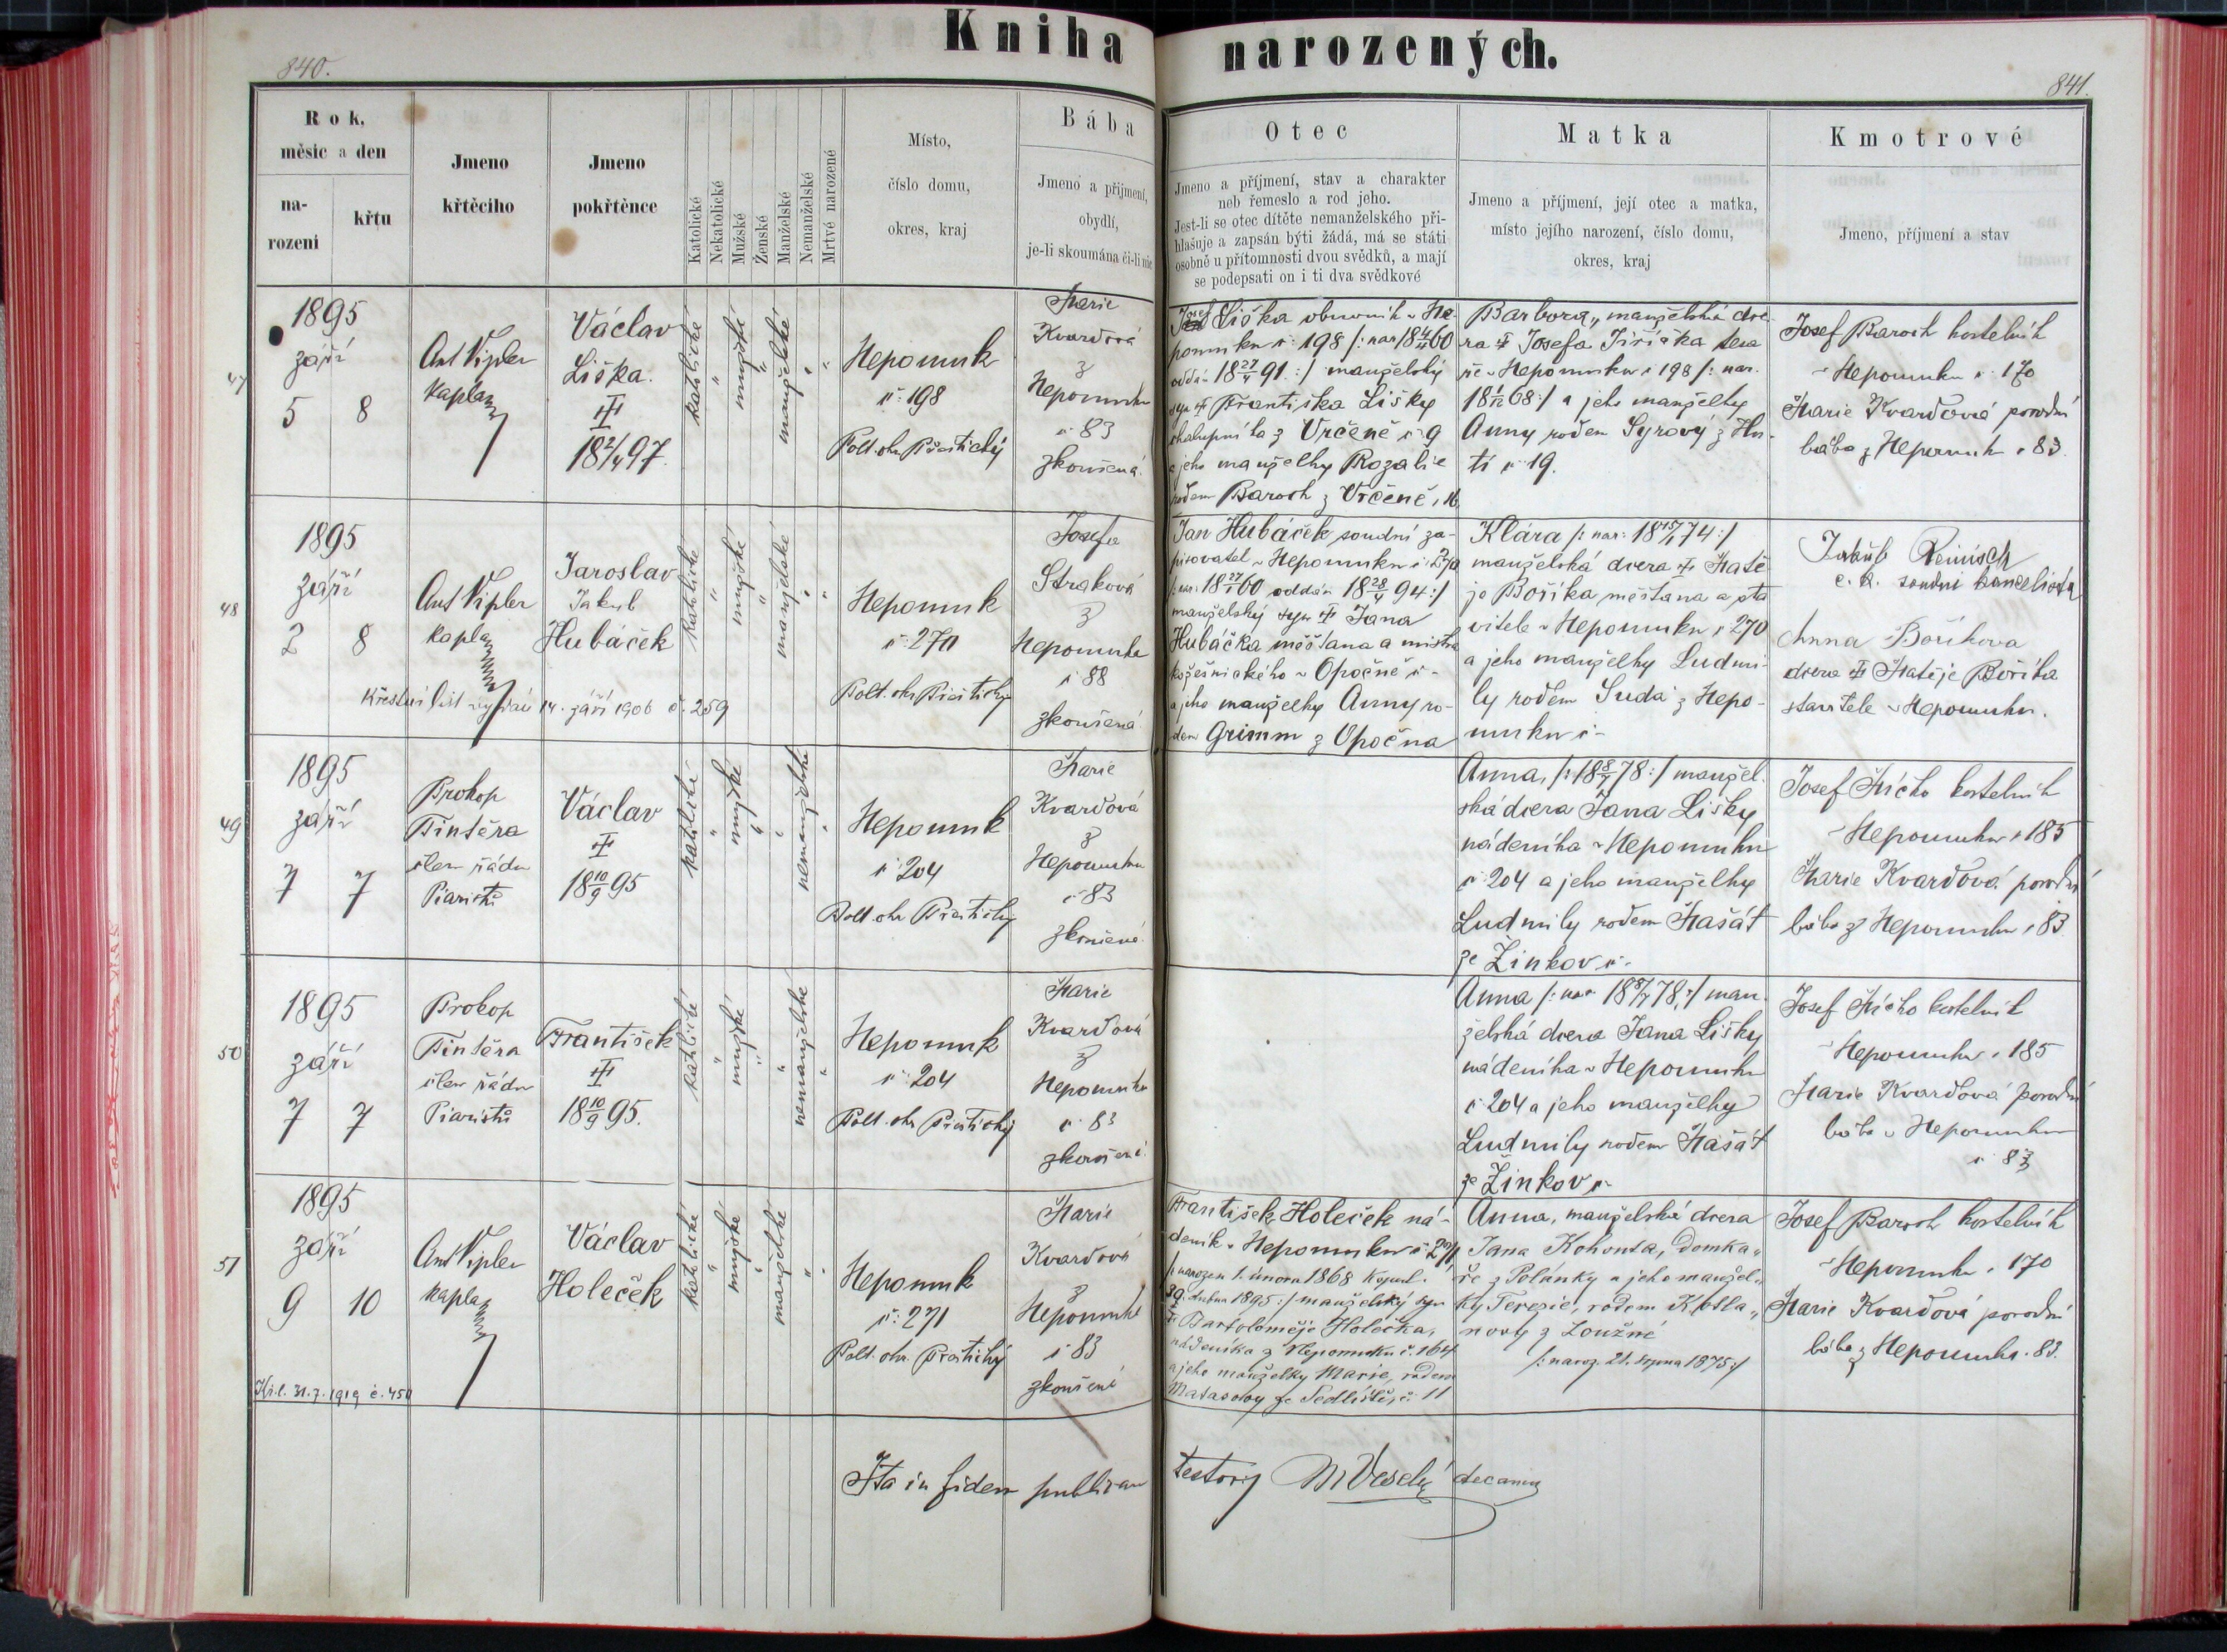 Kniha narozených.
840.
841.
Rok, měsíc a den
na-
rození
křtu
Jmeno
křtěcího
Jmeno
pokřtěnce
Katolické
Nekatolické
Mužské
Ženské
Manželské
Nemanželské
Mrtvé narozené
Místo,
číslo domu,
okres, kraj
Bába
Jmeno a přijmení,
obydlí,
je-li zkoumána či-li nic
Otec
Jmeno a příjmení, stav a charakter
neb řemeslo a rod jeho.
Jest-li se otec dítěte nemanželského při-
hlašuje a zapsán býti žádá, má se státi
osobně u přítomnosti dvou svědků, a mají
se podepsati on i ti dva svědkové
Matka
Jmeno a příjmení, její otec a matka,
místo jejího narození, číslo domu,
okres, kraj
Kmotrové
Jmeno, příjmení a stav
47
1895
září
5 8
Ant Vipler
kaplan
Václav
Liška.
18 2/4 97.
katolické
"
mužské
"
manželské
"
"
Nepomuk
č: 198
Polt. okr Přeštický
Marie
Kvardová
z
Nepomuku
č 83
zkoušená
Josef Liška obuvník v Ne-
pomuku č: 198 /: nar 18 60
oddán 18 27/4 91. :/ manželský
syn Františka Lišky
chalupníka z Vrčeně č 9
a jeho manželky Rozalie
rodem Baroch z Vrčeně č 16
Barbora, manželská dce-
ra Josefa Jiřička
v Nepomuku č 198 /: nar.
18 68 :/ a jeho manželky
Anny rodem Syrový z Hu-
tí č 19.
Josef Baroch kostelník
v Nepomuku č 170
Marie Kvardová porodní
bába z Nepomuku č 83.
48
1895
září
2 8
Ant Vipler
kaplan
Jaroslav
Jakub
Hubáček
katolické
"
mužské
"
manželské
"
"
Nepomuk
č: 270
Polt. okr Přeštický
Josefa
Straková
z
Nepomuku
č 88
zkoušená
Křestní list vydán 14. září 1906 č. 259
Jan Hubáček, soudní za-
pisovatel v Nepomuku č: 270
/: nar: 18 60 oddán 18 28/4 94 :/
manželský syn Jana
Hubáčka měšťana a mistra
kožešnického v Opočně č -
a jeho manželky Anny ro-
dem Grimm z Opočna
Klára /: nar: 18 15/1 74 :/
manželská dcera Matě-
je Boříka měšťana a sta
vitele v Nepomuku č 270
a jeho manželky Ludmi-
ly rodem Suda z Nepo-
muku č -
Jakub Reinisch
c. k. soudní kancelista
Anna Boříkova
dcera Matěje Boříka
stavitele v Nepomuku.
49
1895
září
7 7
Prokop
Pintěra
člen řádu
Piaristů
Václav
18 10/9 95
katolické
"
mužské
"
"
nemanželské
"
Nepomuk
č 204
Polt. okr Přeštický
Marie
Kvardová
z
Nepomuku
č 83
zkoušená
Anna, /: 18 8/7 78 :/ manžel-
ská dcera Jana Lišky
nádeníka v Nepomuku
č 204 a jeho manželky
Ludmily rodem Mašát
ze Žinkov č -
Josef Mícho kostelník
v Nepomuku č 185
Marie Kvardová porodní
bába z Nepomuku č 83.
50
1895
září
7 7
Prokop
Pintěra
člen řádu
Piaristů
František
18 10/9 95.
katolické
"
mužské
"
"
nemanželské
"
Nepomuk
č: 204
Polt. okr Přeštický
Marie
Kvardová
z
Nepomuku
č 83
zkoušená
Anna /: nar 18 8/7 78 :/ man-
želská dcera Jana Lišky
nádeníka v Nepomuku
č 204 a jeho manželky
Ludmily rodem Mašát
ze Žinkov č -
Josef Mícho kostelník
v Nepomuku č 185
Marie Kvardová porodní
bába v Nepomuku
č 83
51
1895
září
9 10
Ant Vipler
kaplan
Václav
Holeček
katolické
"
mužské
"
manželské
"
"
Nepomuk
č: 271
Polt. okr. Přeštický
Marie
Kvardová
z
Nepomuku
č 83
zkoušená
Kř. l. 31.7.1919 č. 450
František Holeček ná-
deník v Nepomuku č 271
/: narozen 1. února 1868 Kopul.
29. dubna 1895 :/ manželský syn
Bartoloměje Holečka,
nádeníka z Nepomuku č. 164
a jeho manželky Marie, rodem
Matasovy ze Sedliště č. 11
Anna, manželská dcera
Jana Kohouta, domka-
ře z Polánky a jeho manžel-
ky Terezie, rodem Kotla-
novy z Loužné
/: naroz. 21. srpna 1875 :/
Josef Baroch kostelník
v Nepomuku č 170
Marie Kvardová porodní
bába z Nepomuku č 83.
Ita in fidem publicam testor M Veselý decanus